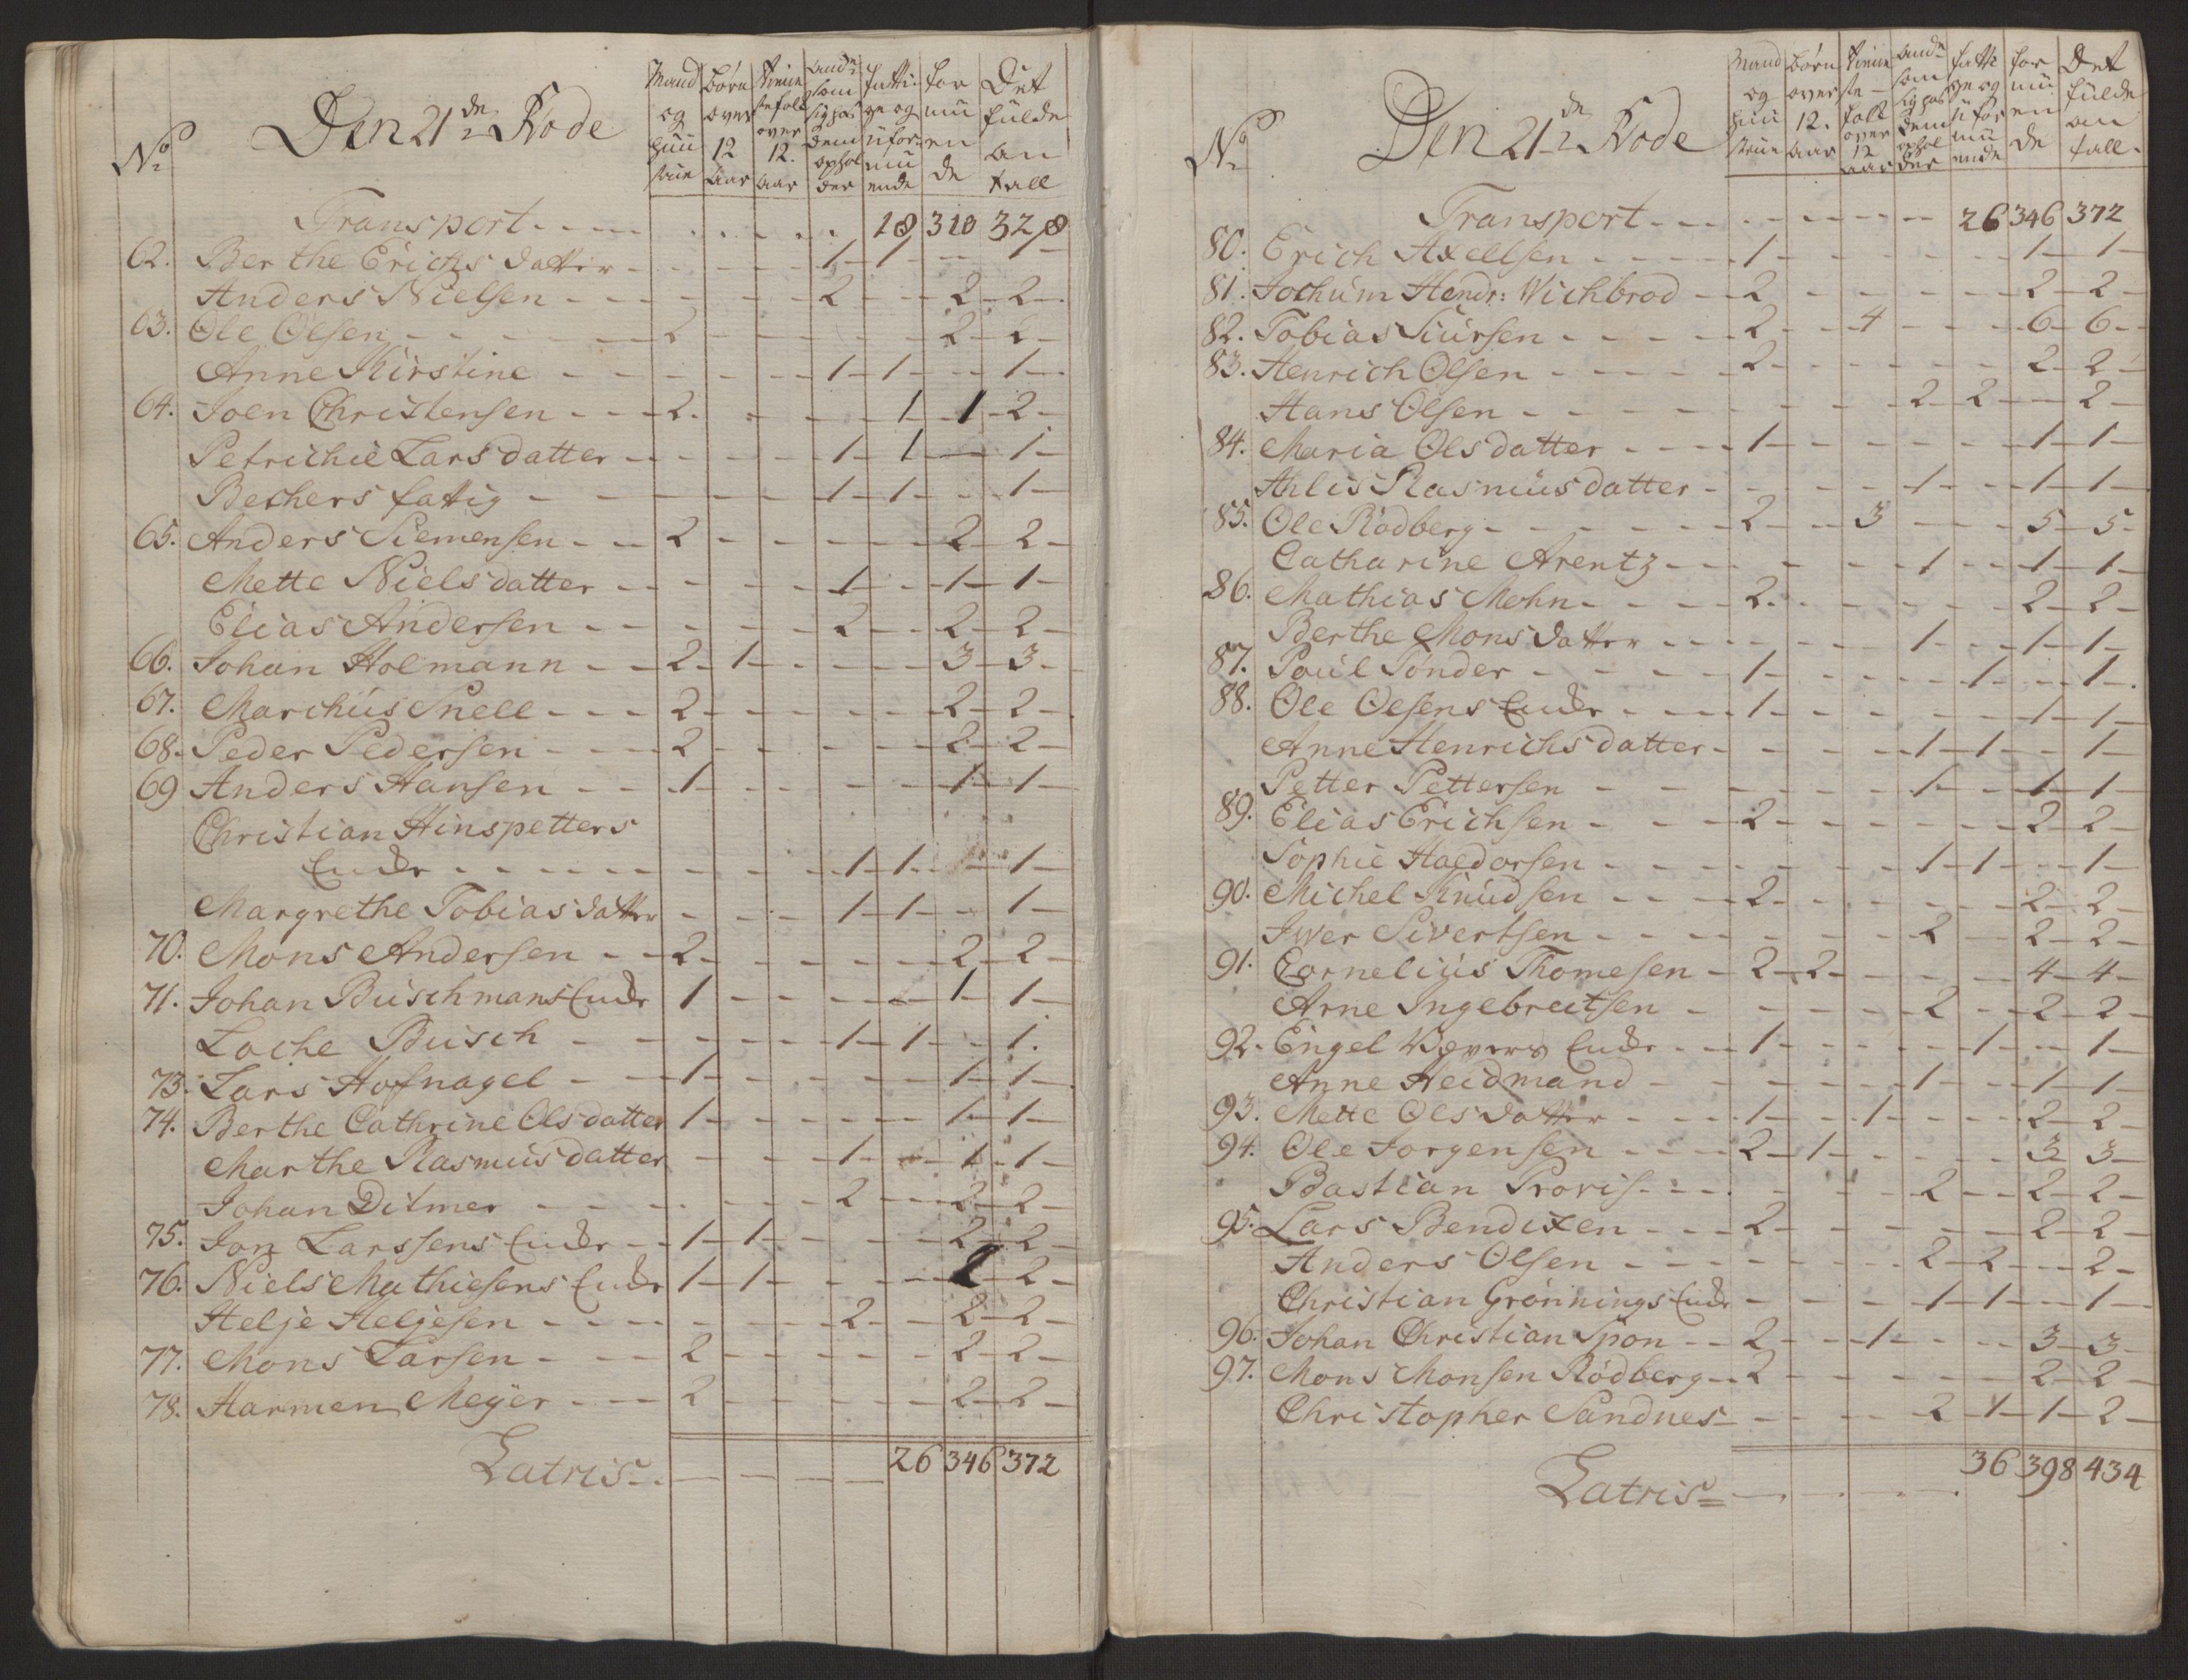 No Den 21de Rode
Mand og Huustrue
Børn over 12 aar
Tieneste folk over 12. aar
Andre som sig hos dem opholder
fattige og uformuende
formuende
Det fulde antall
Transport - - - - 18 310 328
62. Berthe Erichs datter - - - 1 - 1 - 1 -
Anders Nielsen - - - 2 - - 2 - 2 -
63. Ole Olsen - - - 2 - - - 2 - 2 -
Anne Kirstine - - - 1 - 1 - - 1 -
64. Joen Christensen - - - 2 - - - 1 - 1 - 2 -
Petrichie Lars datter - - - 1 - 1 - 1 -
Bechers fattig - - - 1 - 1 - - 1 -
65. Anders Siemensen - - 2 - - - 2 - 2 -
Mette Niels datter - - - 1 - - 1 - 1 -
Elias Andersen - - - 2 - - 2 - 2 -
66. Johan Holmann - - 2 - 1 - - - 3 - 3 -
67. Marchus Snell - - - 2 - - - 2 - 2 -
68. Peder Pedersen - - - 2 - - - 2 - 2 -
69 Anders Hansen - - 1 - - - 1 - 1 -
Christian Hinspetters
Encke - - - - 1 - 1 - - 1 -
Margrethe Tobias datter - - - 1 - 1 - - 1 -
70. Mons Andersen - - 2 - - - 2 - 2 -
71. Johan Buschmans Encke 1 - - - 1 - 1 -
Loche Busch - - - 1 - 1 - - 1.
73. Lars Hofnagel - - 1 - - - 1 - 1 -
74. Berthe Cathrine Olsdatter 1 - - - 1 - 1 -
Marthe Rasmus datter - - - 1 - - 1 - 1 -
Johan Ditmer - - - 2 - - 2 - 2 -
75. Jon Larssens Encke - 1 - 1 - - - 2 - 2 -
76. Niels Mathiesens Encke 1 - 1 - - - 2 - 2 -
Helje Heljesen - - - 2 - - 2 - 2 -
77. Mons Larsen - - - 2 - - - 2 - 2 -
78. Harmen Meyer - - - 2 - - - 2 - 2 -
Latris - - - - 26 346 372
No Den 21de Rode
Mand og Huustrue
Børn over 12. aar
Tieneste folk over 12 aar
Andre som sig hos dem opholder
fattige og uformuende
formuende
Det fulde antall
Transport - - - - 26 346 372
80. Erich Axellsen - - - 1 - - - 1 - 1 -
81. Jochum Hendr: Wichbrod - 2 - - - 2 - 2 -
82. Tobias Siursen - - - 2 - - 4 - - - 6 - 6 -
83. Henrich Olsen - - - 2 - - - 2 - 2 -
Hans Olsen - - - 2 - 2 - - 2 -
84. Maria Ols datter - - - 1 - - - 1 - 1 -
Ahlis Rasmus datter - - - 1 - - 1 - 1 -
85. Ole Rødberg - - - 2 - - 3 - - - 5 - 5 -
Catharine Arentz - - - 1 - - 1 - 1 -
86. Mathias Mohn - - - 2 - - - 2 - 2 -
Berthe Mons datter - - - 1 - - 1 - 1 -
87. Poul Tønder - - - 1 - - - 1 - - 1 -
88. Ole Olsens Encke - - - 1 - - - 1 - 1 -
Anne Henrichs datter - - - 1 - 1 - - 1 -
Petter Pettersen - - - 1 - - 1 - 1 -
89. Elias Erichsen - - - 2 - - - 2 - 2 -
Sophie Hagdorsen - - - 1 - 1 - - 1 -
90. Michel Knudsen - - - 2 - - - 2 - 2 -
Iwer Sivertsen - - - 2 - - 2 - 2 -
91. Cornelius Thomesen - 2 - 2 - - - 4 - 4 -
Arne Ingebreitsen - - - 2 - - 2 - 2 -
92. Engel Encke - - 1 - - - 1 - - 1 -
Anne Heidmand - - - 1 - - 1 - 1 -
93. Mette Ols datter - - - 1 - - 1 - - - 2 - 2 -
94. Ole Jorgensen - - - 2 - 1 - - - 3 - 3 -
Bastian Provis - - - 2 - - 2 - 2 -
95. Lars Bendixen - - - 2 - - - 2 - 2 -
Anders Olsen - - - 2 - 2 - - 2 -
Christian Grønnings Encke - - - 1 - 1 - - 1 -
96. Johan Christian Spon - - 2 - - 1 - - - 3 - 3 -
97. Mons Monsen Rødberg - 2 - - - 2 - 2 -
Christopher Sandnes - - - 2 - 1 - 1 - 2 -
Latris - - - - 36 398 434